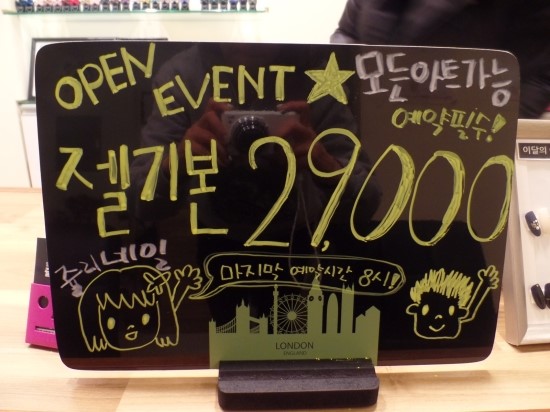 OPEN
EVENT
모든아트가능
예약필수!
젤기본 29,000
쥴리네일
마지막 예약시간 8시!!
LONDON
ENGLAND
이달의